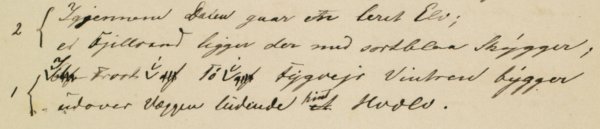 2 { Igjennem Dalen gaar en leret Elv;
et Fjellvand ligger der med sortblaa Skygger;
1 { I Frost, i Tø, i Fygvejr Vintren bygger
udover Væggen ludende sin Hvælv.